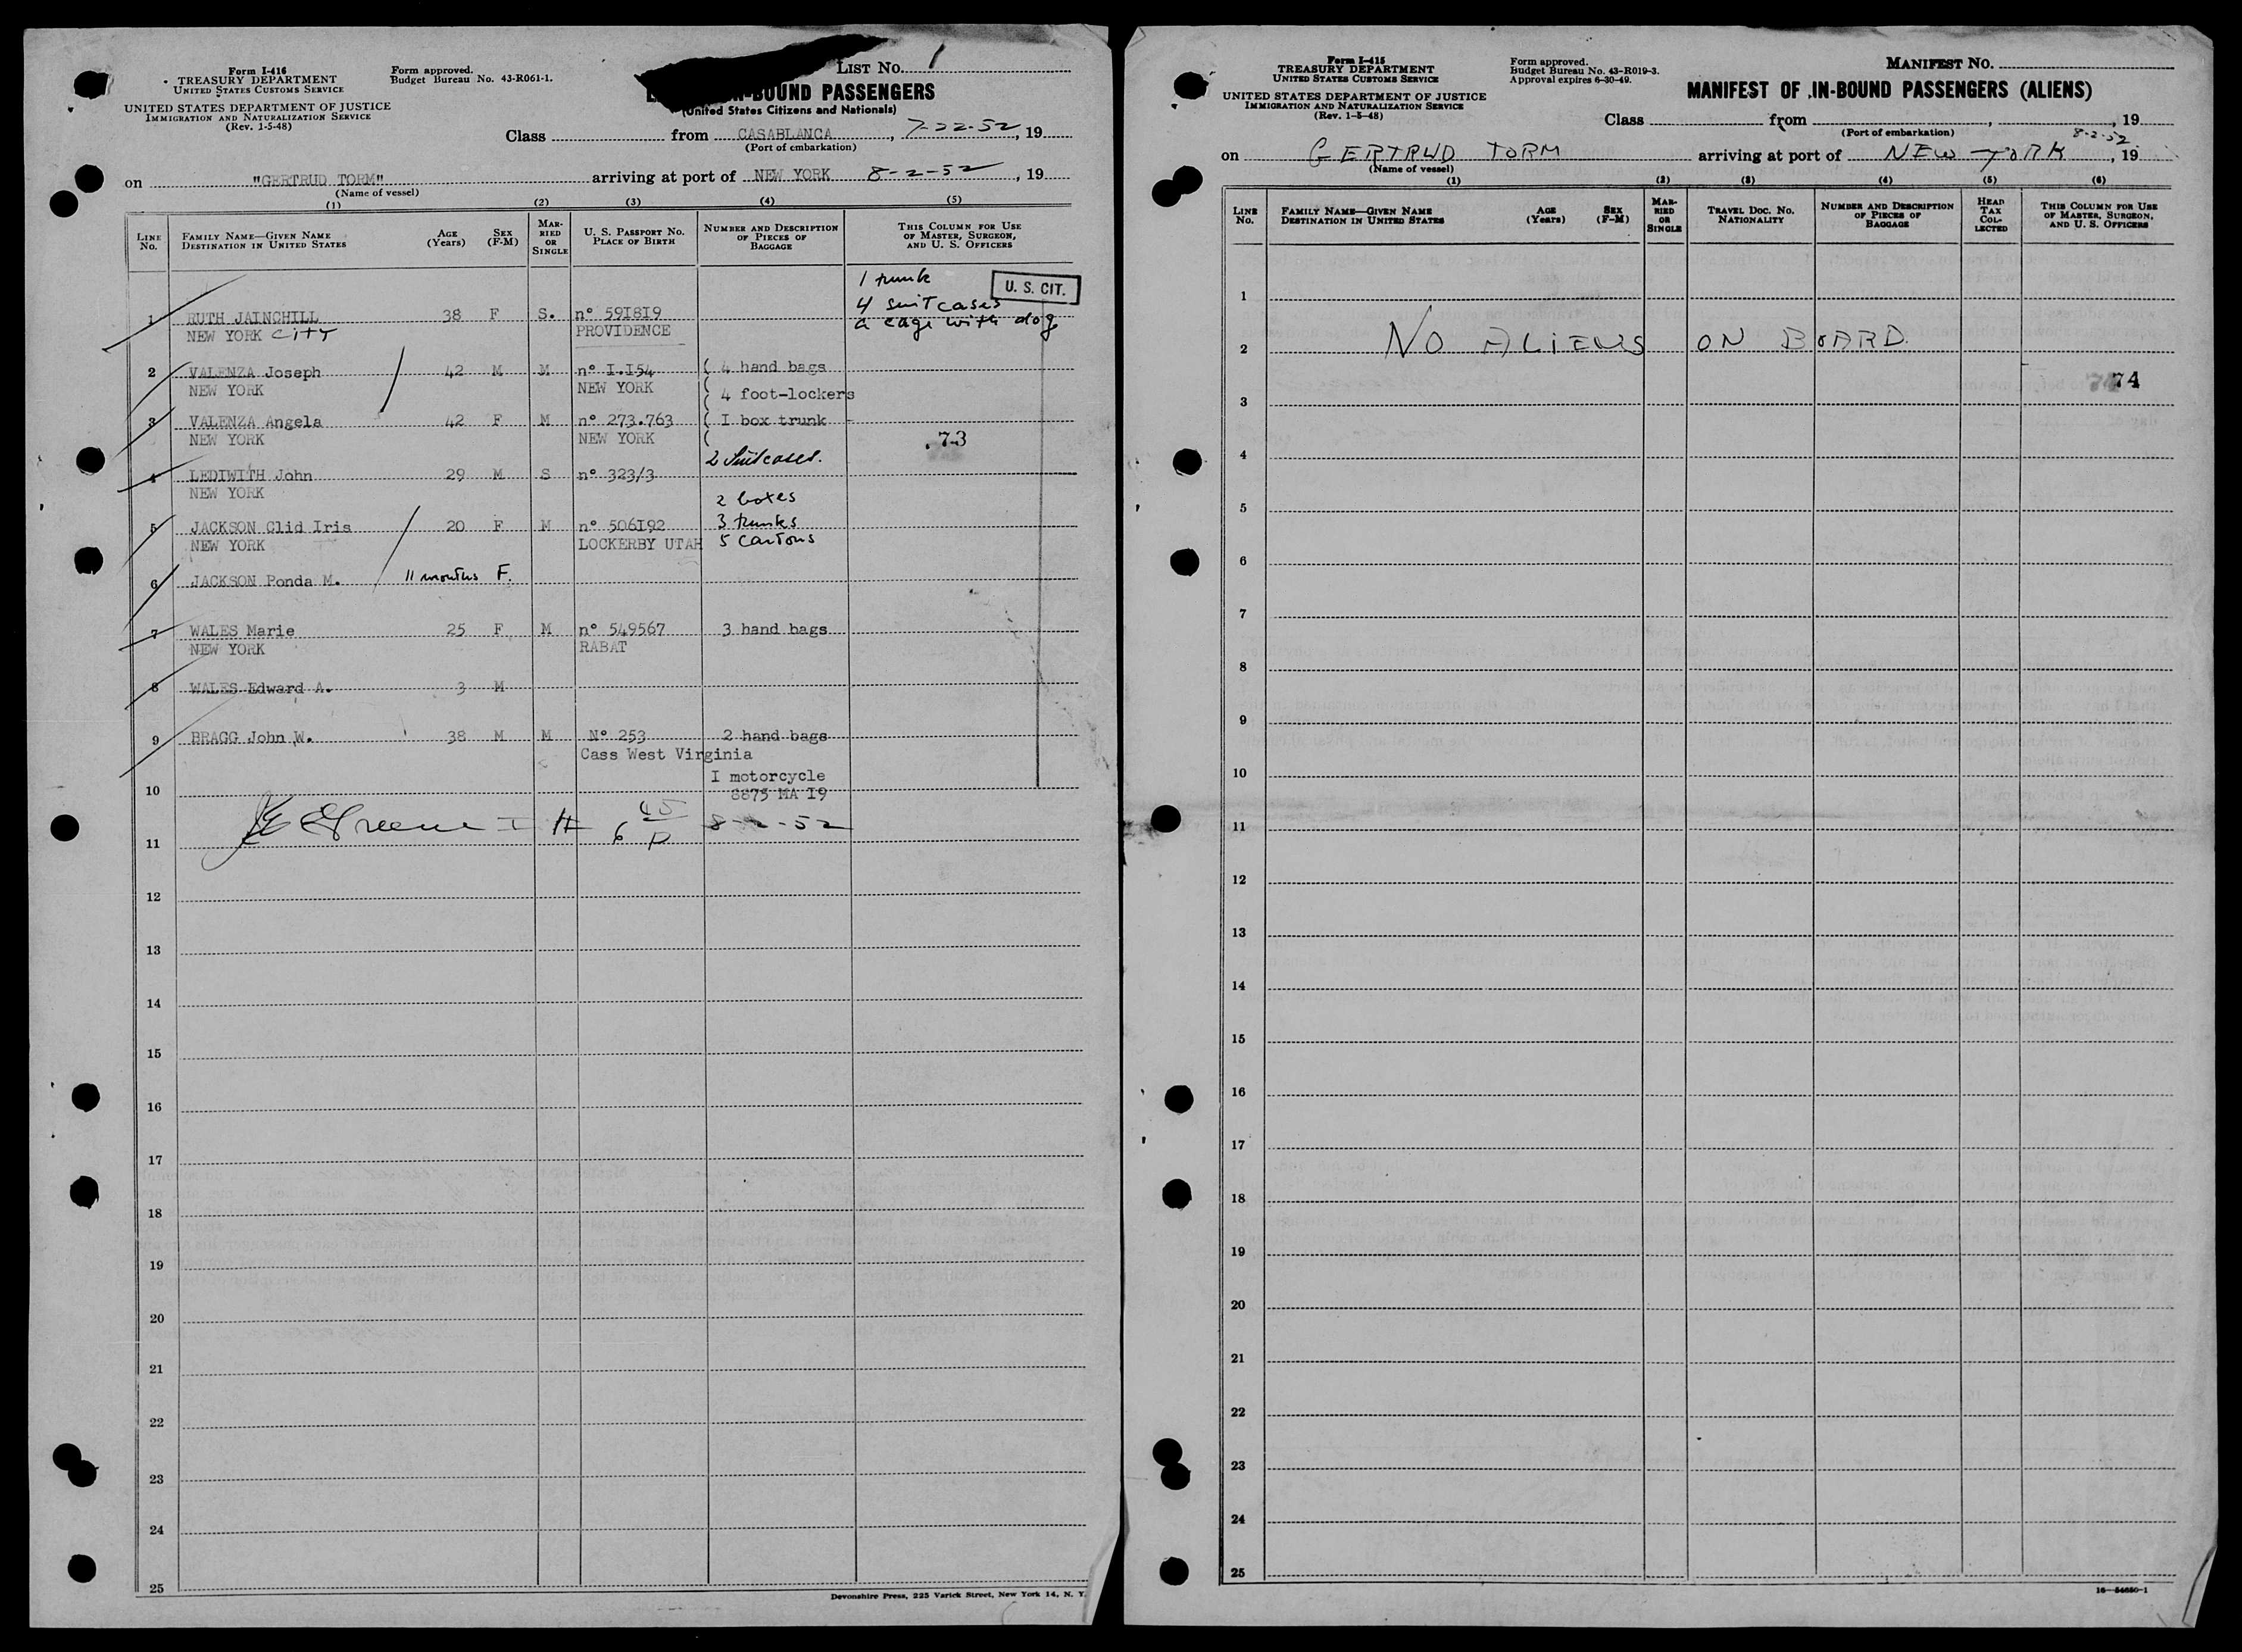 Form I-416
TREASURY DEPARTMENT
UNITED STATES CUSTOMS SERVICE
UNITED STATES DEPARTMENT OF JUSTICE
IMMIGRATION AND NATURALIZATION SERVICE
(Rev. 1-5-48)
Form approved.
Budget Bureau No. 43-R061-1.
LIST No. 1
IN-BOUND PASSENGERS
(United States Citizens and Nationals)
Class from CASABLANCA, 7-22-52, 19
(Port of embarkation)
on "GERTRUD TORM" arriving at port of NEW YORK 8-2-52, 19
(Name of vessel)
(1) (2) (3) (4) (5)
LINE No. FAMILY NAME—GIVEN NAME DESTINATION IN UNITED STATES AGE (Years) SEX (F-M) MARRIED OR SINGLE U. S. PASSPORT No. PLACE OF BIRTH NUMBER AND DESCRIPTION OF PIECES OF BAGGAGE THIS COLUMN FOR USE OF MASTER, SURGEON, AND U. S. OFFICERS
1 trunk
4 suitcases U. S. CIT.
1 RUTH JAINCHILL 38 F S. n° 591819 a cage with dog
NEW YORK CITY PROVIDENCE
2 VALENZA Joseph 42 M M n° I.I54 ( 4 hand bags
NEW YORK NEW YORK ( 4 foot-lockers
3 VALENZA Angela 42 F M n° 273.763 ( I box trunk
NEW YORK NEW YORK ( .73
2 Suitcases.
4 LEDIWITH John 29 M S n° 323/3
NEW YORK 2 boxes
5 JACKSON Clid Iris 20 F M n° 506I92 3 trunks
NEW YORK LOCKERBY UTAH 5 cartons
6 JACKSON Ronda M. 11 months F.
7 WALES Marie 25 F M n° 549567 3 hand bags
NEW YORK RABAT
8 WALES Edward A. 3 M
9 BRAGG John W. 38 M M N° 253 2 hand bags
Cass West Virginia
I motorcycle
10 8875 MA I9
11 Greene 6 45 P 8-2-52
12
13
14
15
16
17
18
19
20
21
22
23
24
25
Devonshire Press, 225 Varick Street, New York 14, N. Y.
Form I-415
TREASURY DEPARTMENT
UNITED STATES CUSTOMS SERVICE
UNITED STATES DEPARTMENT OF JUSTICE
IMMIGRATION AND NATURALIZATION SERVICE
(Rev. 1-5-48)
Form approved.
Budget Bureau No. 43-R019-3.
Approval expires 6-30-49.
MANIFEST No.
MANIFEST OF IN-BOUND PASSENGERS (ALIENS)
Class from , , 19
(Port of embarkation)
on GERTRUD TORM arriving at port of NEW YORK 8-2-52, 19
(Name of vessel)
(1) (2) (3) (4) (5) (6)
LINE No. FAMILY NAME—GIVEN NAME DESTINATION IN UNITED STATES AGE (Years) SEX (F-M) MARRIED OR SINGLE TRAVEL DOC. No. NATIONALITY NUMBER AND DESCRIPTION OF PIECES OF BAGGAGE HEAD TAX COLLECTED THIS COLUMN FOR USE OF MASTER, SURGEON, AND U. S. OFFICERS
1
2 NO ALIENS ON BOARD.
74
3
4
5
6
7
8
9
10
11
12
13
14
15
16
17
18
19
20
21
22
23
24
25
16—54650-1